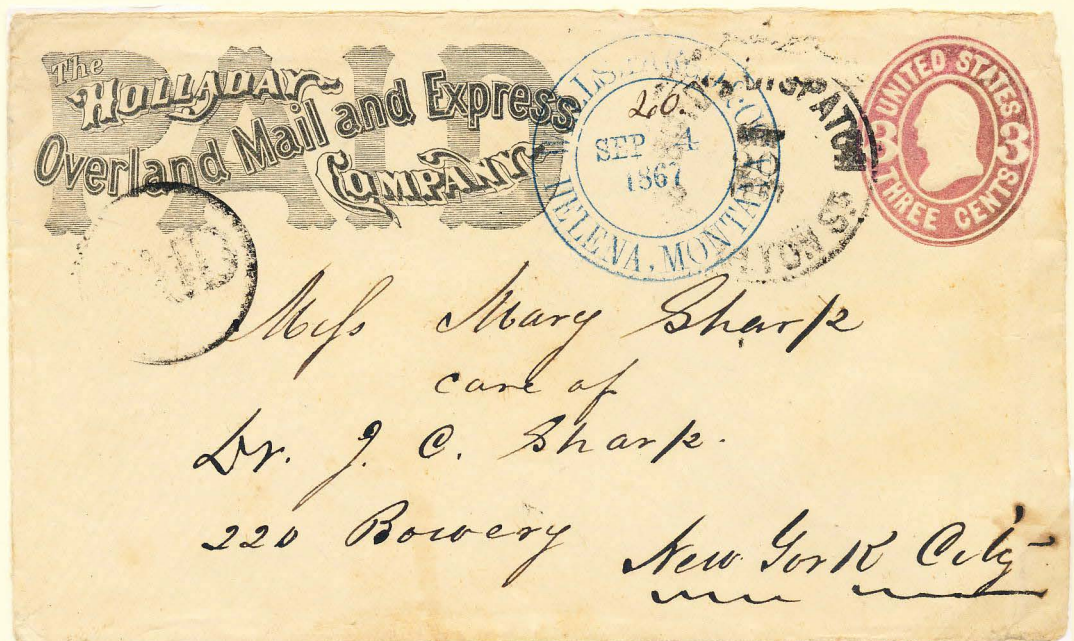 PAID
The
HOLLADAY
Overland Mail and Express
COMPANY
WELLS, FARGO & CO.
20
SEP 4
1867
HELENA, MONTANA
DISPATCH
UNITED STATES
3 3
THREE CENTS
PAID
Miſs Mary Sharp
care of
Dr. J. C. Sharp.
220 Bowery
New York City